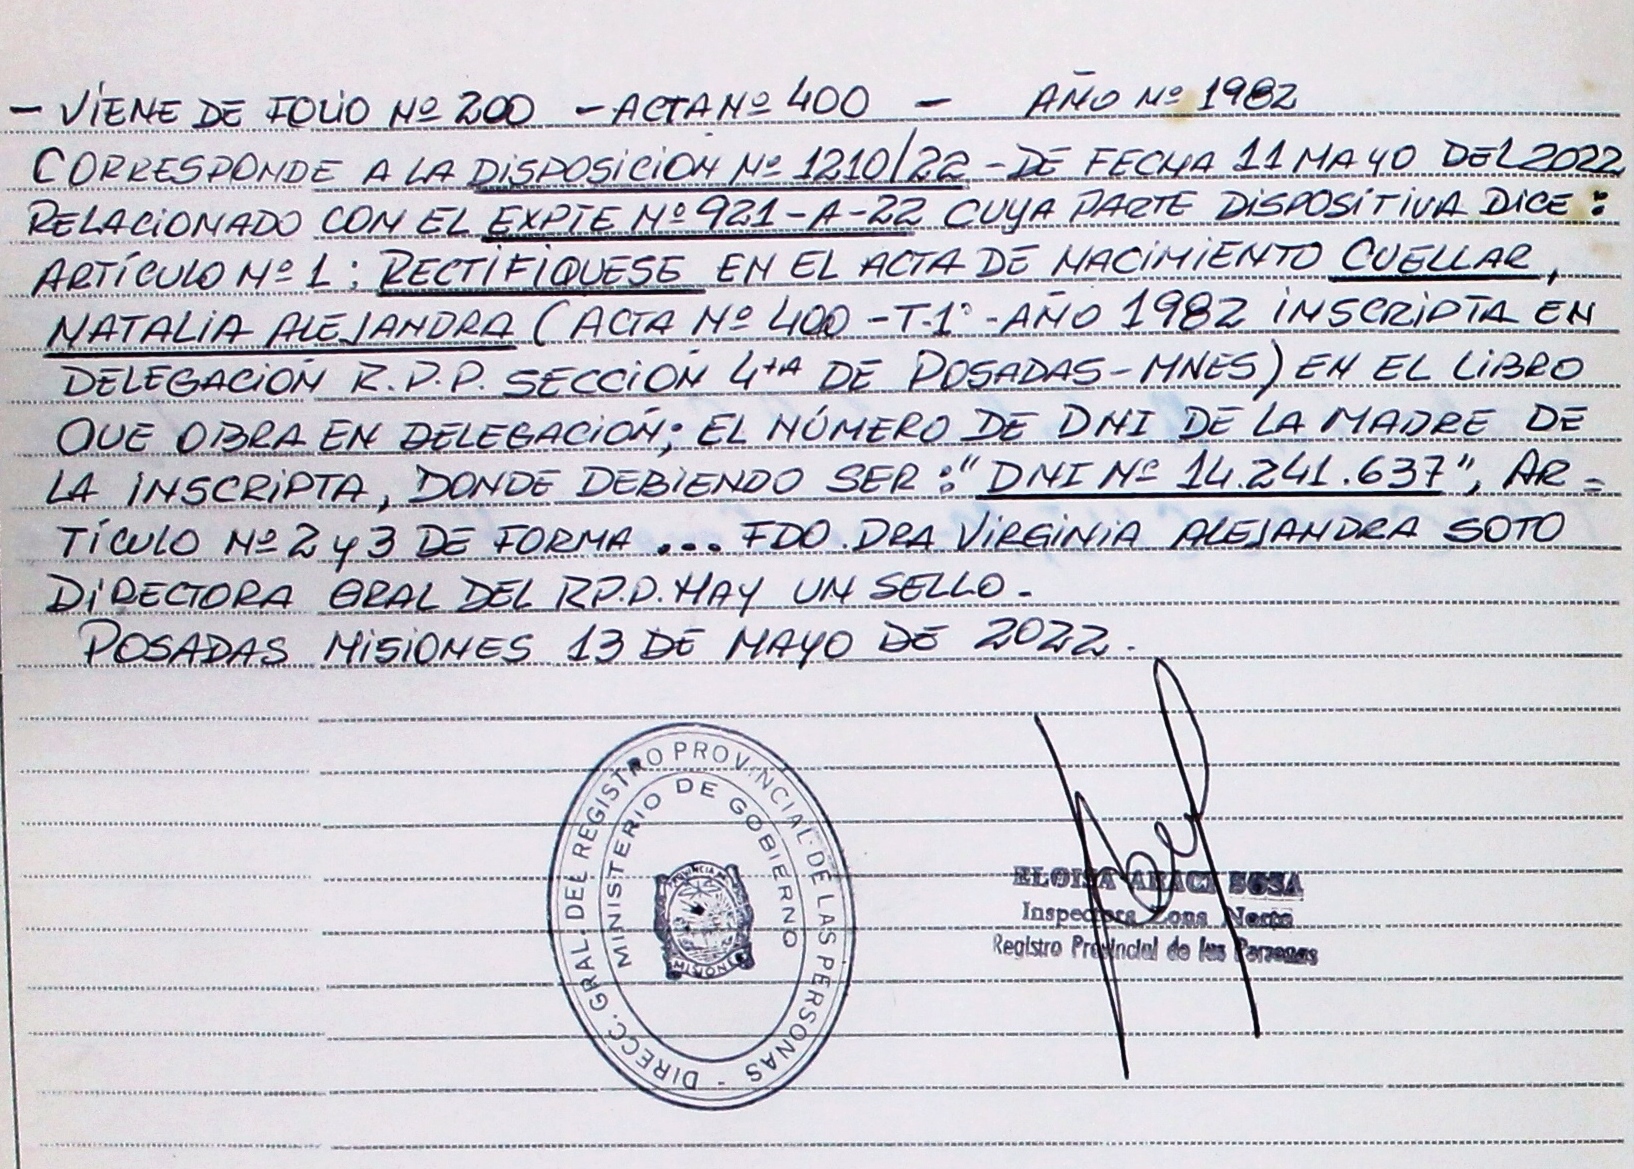 - VIENE DE FOLIO Nº 200 - ACTA Nº 400 - AÑO Nº 1982
CORRESPONDE A LA DISPOSICIÓN Nº 1210/22 - DE FECHA 11 MAYO DEL 2022
RELACIONADO CON EL EXPTE Nº 921-A-22 CUYA PARTE DISPOSITIVA DICE:
ARTÍCULO Nº 1: RECTIFIQUESE EN EL ACTA DE NACIMIENTO CUELLAR,
NATALIA ALEJANDRA (ACTA Nº 400 - T-1º - AÑO 1982 INSCRIPTA EN
DELEGACIÓN R.P.P. SECCIÓN 4tA DE POSADAS - MNES) EN EL LIBRO
QUE OBRA EN DELEGACIÓN; EL NÚMERO DE DNI DE LA MADRE DE
LA INSCRIPTA, DONDE DEBIENDO SER: "DNI Nº 14.241.637", AR-
TÍCULO Nº 2 y 3 DE FORMA ... FDO. DRA VIRGINIA ALEJANDRA SOTO
DIRECTORA GRAL DEL R.P.P. HAY UN SELLO.-
POSADAS MISIONES 13 DE MAYO DE 2022.
DIRECC. GRAL. DEL REGISTRO PROVINCIAL DE LAS PERSONAS -
MINISTERIO DE GOBIERNO
PROVINCIA DE
MISIONES
ELOISA ARACI SOSA
Inspectora Zona Norte
Registro Provincial de las Personas